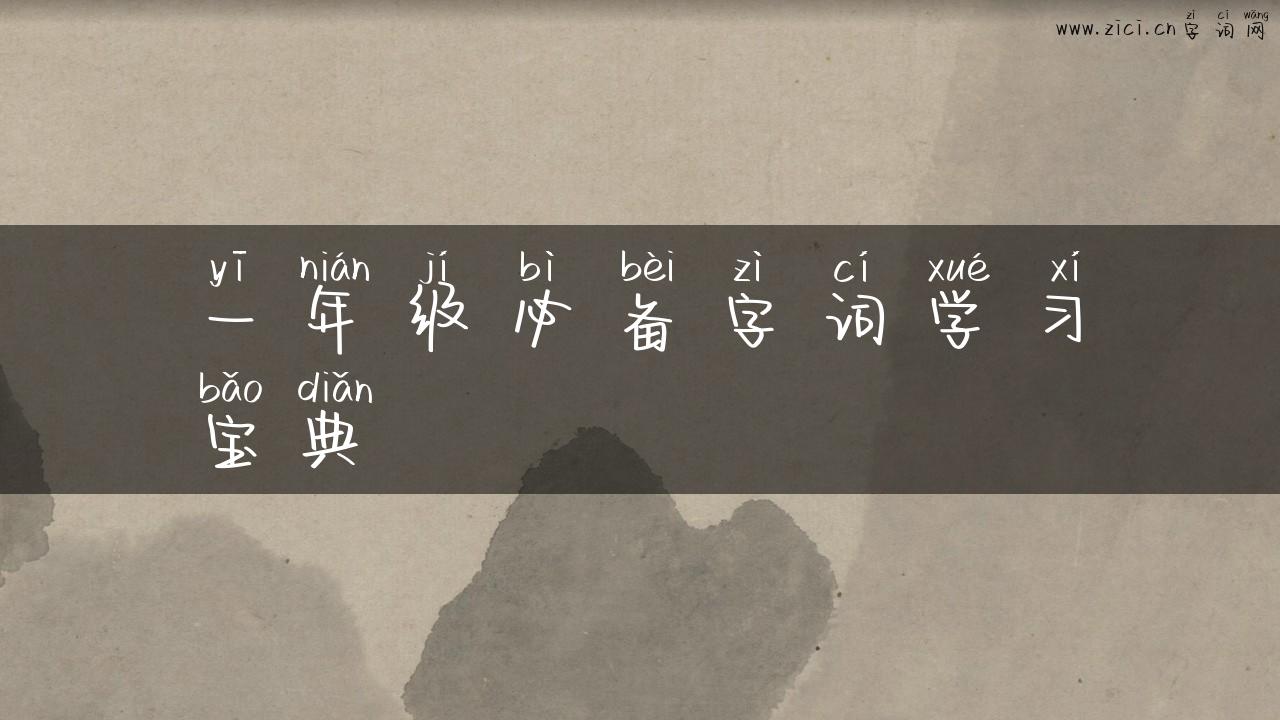 zì cí wǎng
www.zici.cn 字 词 网
yī nián jí bì bèi zì cí xué xí
一 年 级 必 备 字 词 学 习
bǎo diǎn
宝 典